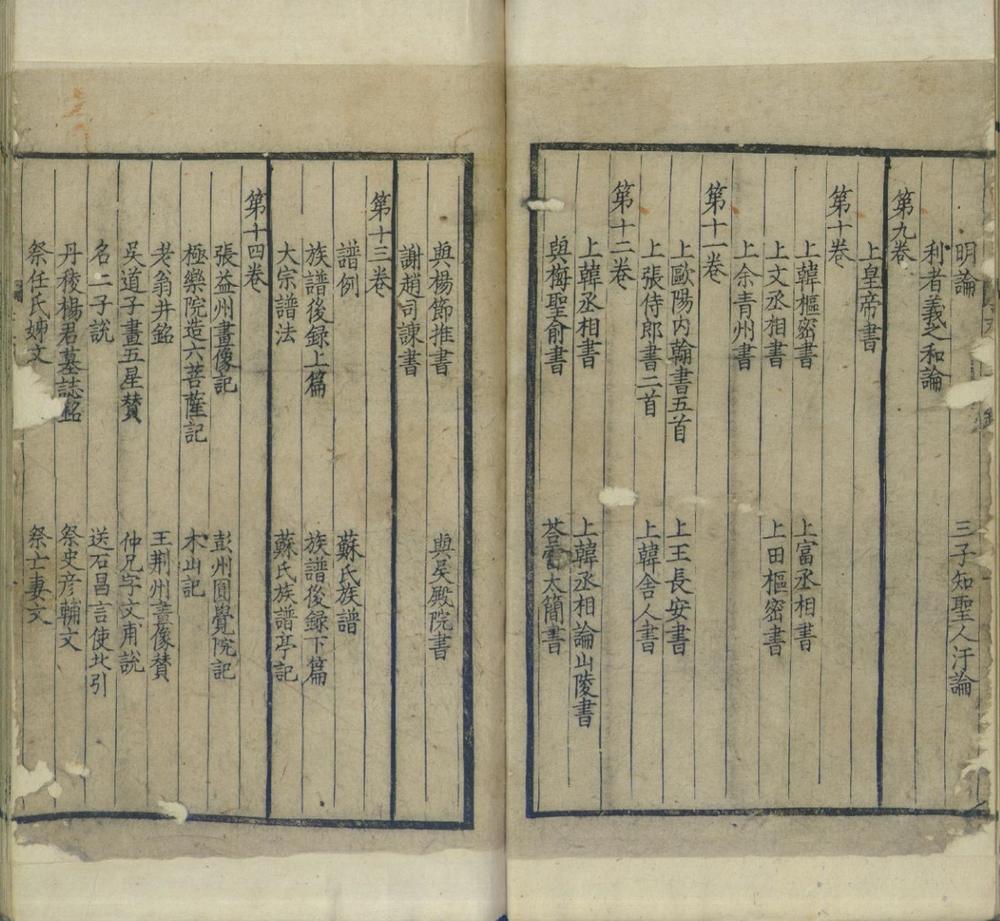 明論　三子知聖人汙論
利者義之和論
第九卷
上皇帝書
第十卷
上韓樞密書　上富丞相書
上文丞相書　上田樞密書
上余青州書
第十一卷
上歐陽内翰書五首　上王長安書
上張侍郎書二首　上韓舍人書
第十二卷
上韓丞相書　上韓丞相論山陵書
與梅聖俞書　荅雷太簡書
與楊節推書　與吳殿院書
謝趙司諫書
第十三卷
譜例　蘇氏族譜
族譜後録上篇　族譜後録下篇
大宗譜法　蘇氏族譜亭記
第十四卷
張益州畫像記　彭州圓覺院記
極樂院造六菩薩記　木山記
老翁井銘　王荆州畫像賛
吳道子畫五星賛　仲兄字文甫說
名二子說　送石昌言使北引
丹稜楊君墓誌銘　祭史彦輔文
祭任氏姊文　祭亡妻文